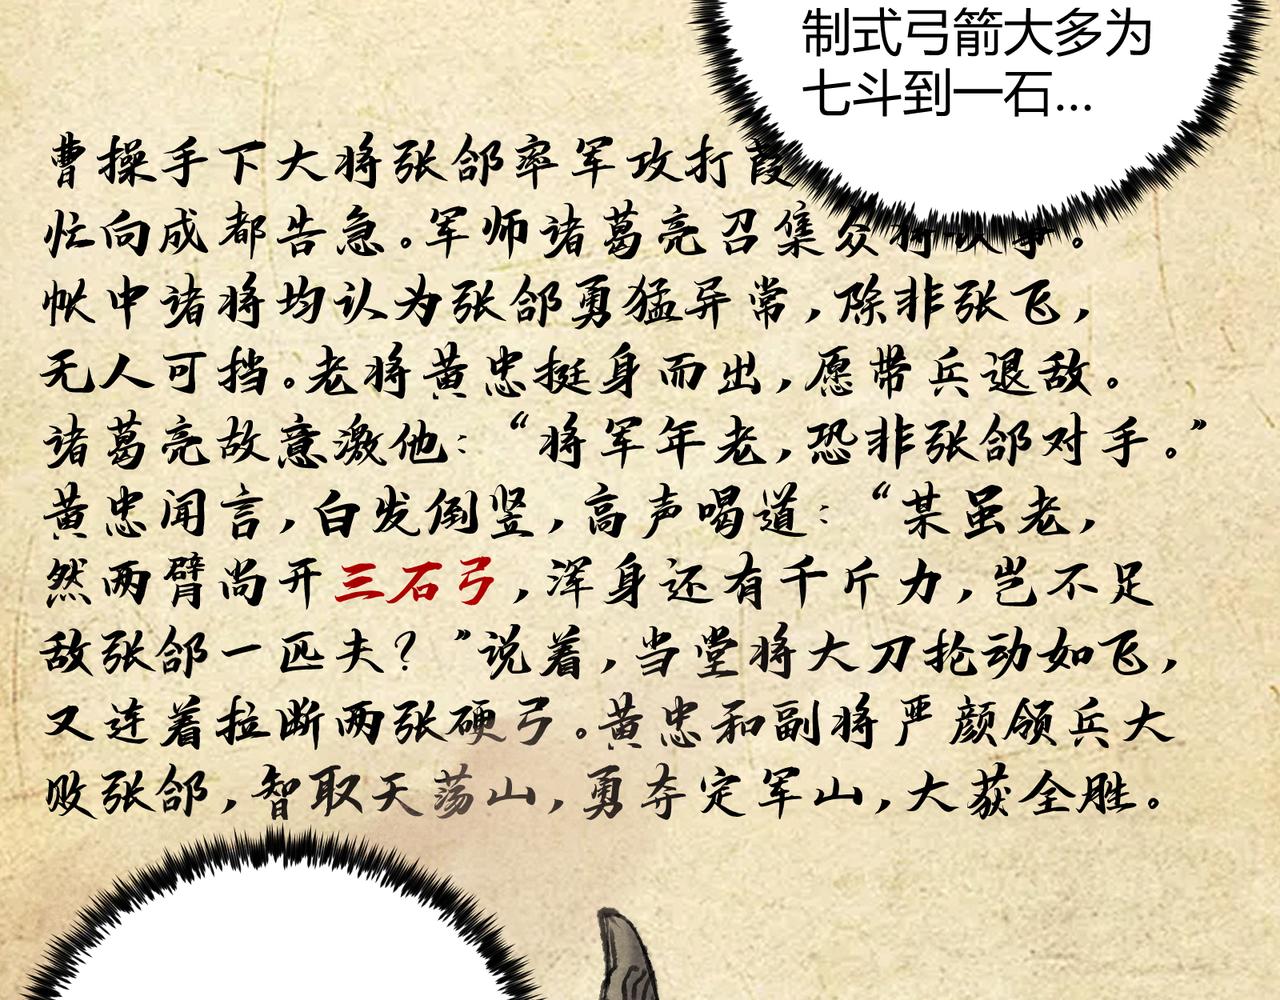 制式弓箭大多为
七斗到一石...
曹操手下大将张郃率军攻打葭
忙向成都告急。军师诸葛亮召集众将议事。
帐中诸将均认为张郃勇猛异常，除非张飞，
无人可挡。老将黄忠挺身而出，愿带兵退敌。
诸葛亮故意激他：“将军年老，恐非张郃对手。”
黄忠闻言，白发倒竖，高声喝道：“某虽老，
然两臂尚开三石弓，浑身还有千斤力，岂不足
敌张郃一匹夫？”说着，当堂将大刀抡动如飞，
又连着拉断两张硬弓。黄忠和副将严颜领兵大
败张郃，智取天荡山，勇夺定军山，大获全胜。